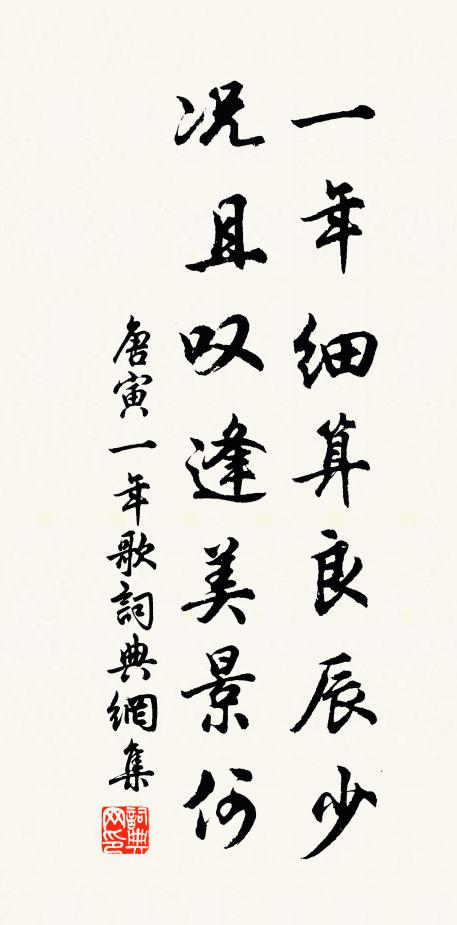 一年细算良辰少
况且叹逢美景何
唐寅一年歌詞典網集
詞典
网印